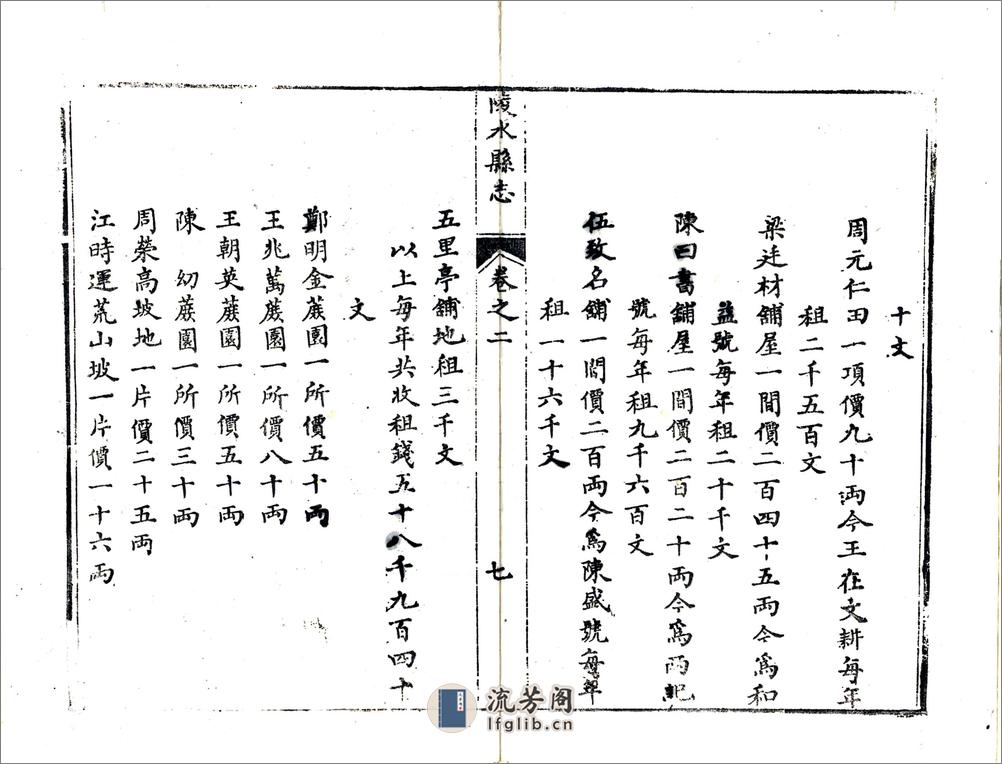 十文
周元仁田一項價九十両今王在文耕每年
租二千五百文
梁廷材舖屋一間價二百四十五両今爲和
益號每年租二十千文
陳曰書舖屋一間價二百二十両今爲両記
號每年租九千六百文
伍致名舖一間價二百両今爲陳盛號每年
租一十六千文
陵水縣志
卷之二
七
五里亭舖地租三千文
以上每年共收租錢五十八千九百四十
文
鄭明金蔗園一所價五十両
王兆萬蔗園一所價八十両
王朝英蔗園一所價五十両
陳 幼蔗園一所價三十両
周榮高坡地一片價二十五両
江時運荒山坡一片價一十六両
流芳阁
lfglib.cn